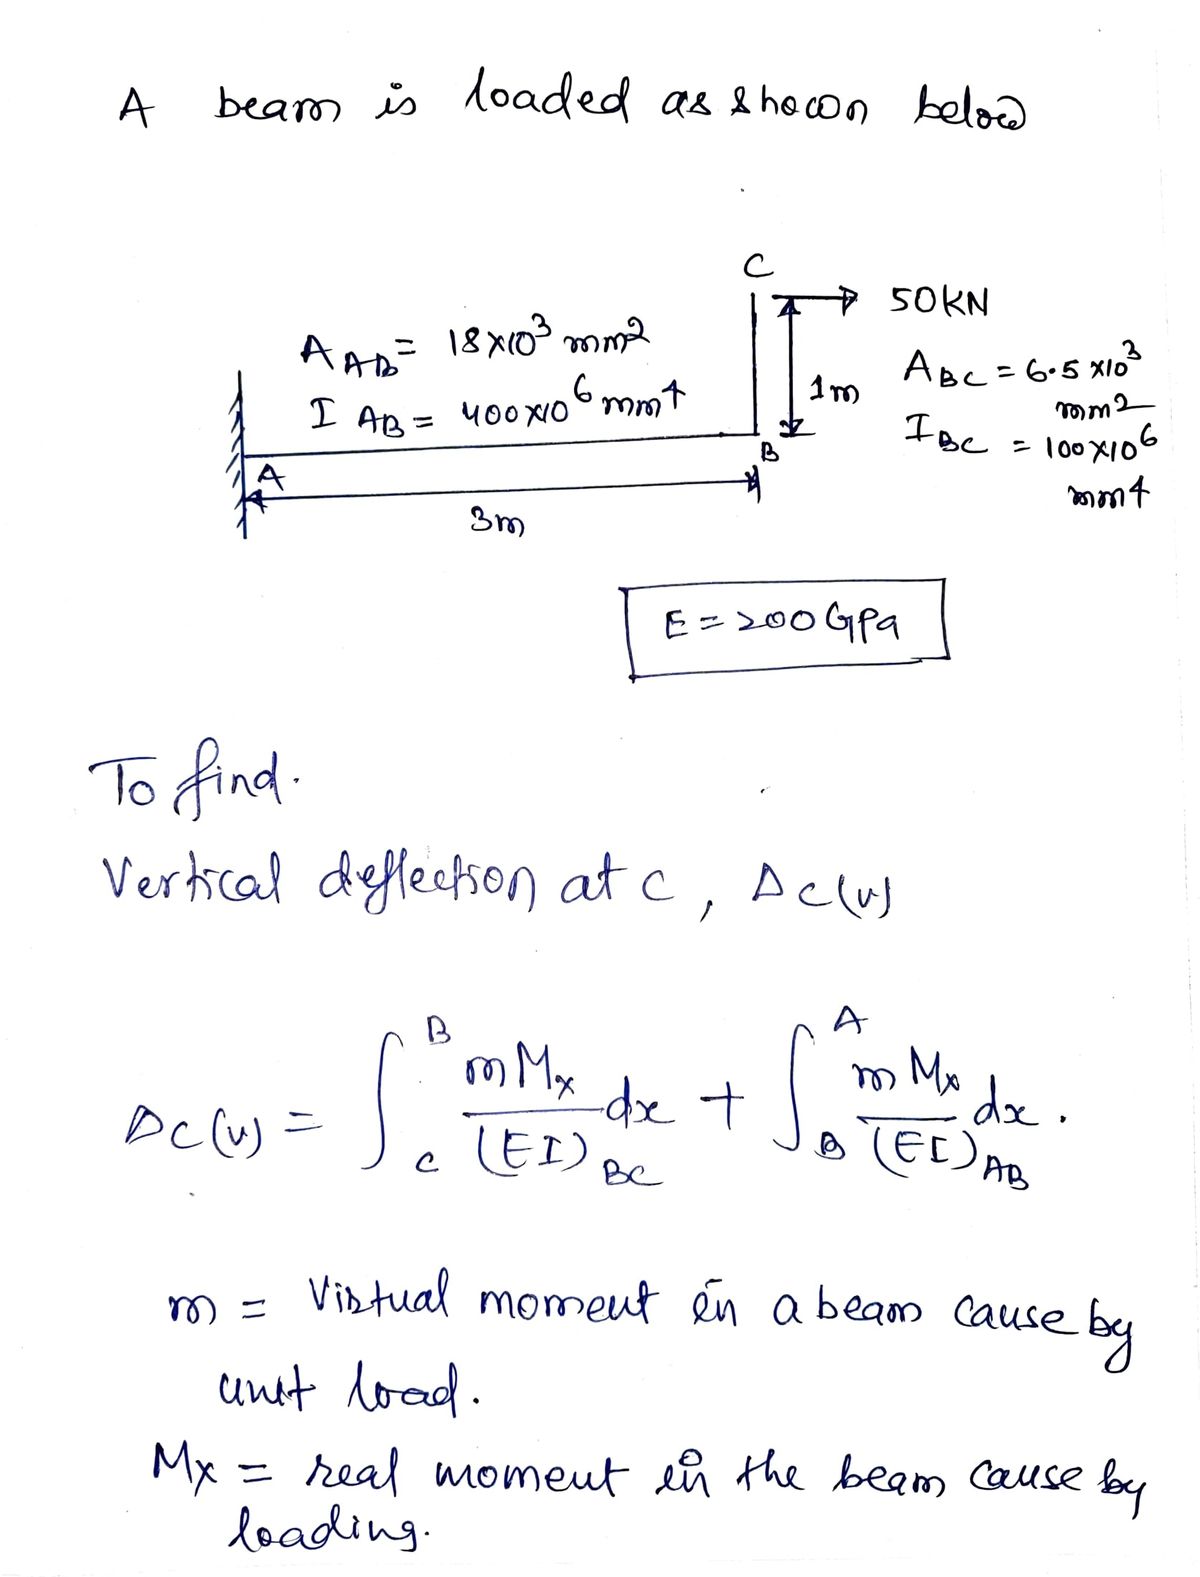 A beam is loaded as shown below
C
50KN
A AB = 18×10³ mm2
A BC = 6.5 ×10³
mm2
I AB = 400×10⁶ mm4
1m
I BC = 100×10⁶
mm4
A
B
3m
E = 200 GPa
To find.
Vertical deflection at C, ΔC(v)
ΔC(v) = ∫_C^B mMx/(EI)BC dx + ∫_B^A mMx/(EI)AB dx.
m = Virtual moment in a beam cause by
unit load.
Mx = real moment in the beam cause by
loading.